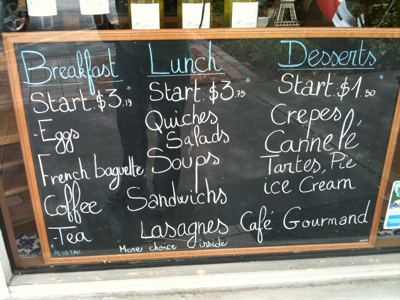 Breakfast
Start.$3.19*
-Eggs
French baguette
Coffee
Tea
*PLUSTAX
Lunch
Start.$3.75*
Quiches
Salads
Soups
Sandwichs
Lasagnes
More choice inside
Desserts
Start.$1.50*
Crepes,
Cannelé
Tartes, Pie
ice Cream
Café Gourmand